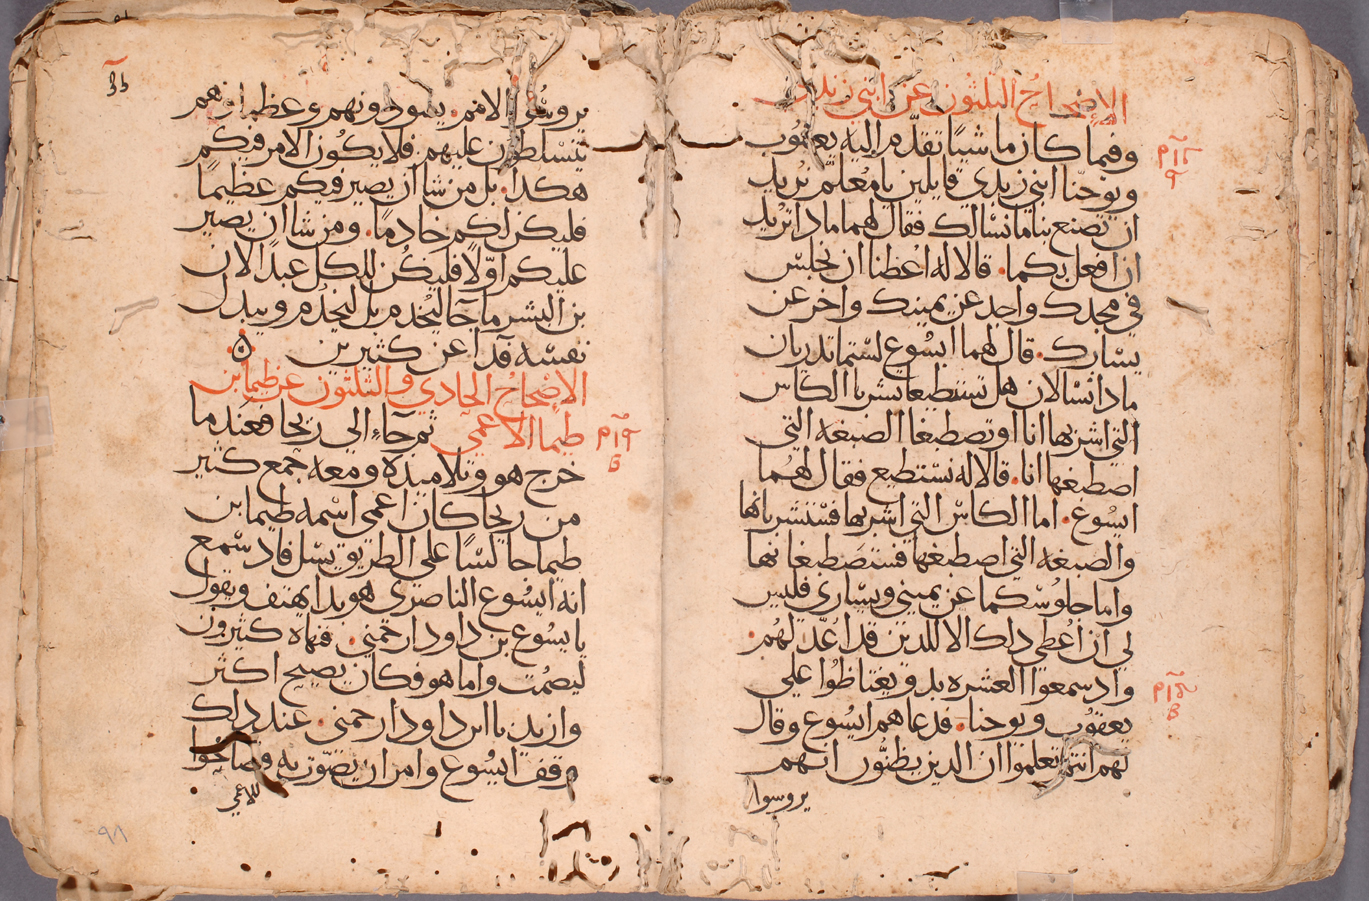 الإصحاحُ الثلثون عن ابني زبدي
وفيما كان ماشيًا تقدّم اليه يعقوب
ويوحنّا ابني زبدي قايلين يا مُعلّم نريد
ان تصنع بنا ما نسالك فقال لهما ماذا تريد
ان افعل بكما. قالا له اعْطنا ان نجلس
في مجدك واحد عن يمينك واخر عن
يسارك. قال لهما ايسوع لستما تدريان
ماذا تسالان هل تستطيعا تشربا الكاس
التي اشربها انا او تصطبغا الصبغه التي
اصطبغها انا. قالا له نستطيع فقال لهُما
ايسُوع. اما الكاس التي اشربها فستشربانها
والصبغه التي اصطبغها فستصطبغانها
واما جلوسكما عن يميني ويساري فليس
لي ان اُعطي ذلك الا للذين قد اُعدّ لهُم.
واذ سمعوا العشره بدو يغتاظوا علي
يعقوب ويوحنا. فدعاهم ايسُوع وقال
لهم انتم تعلموا ان الذين يظنّون انهم
يروسوا
يروسُوا الامم. يسودونهم وعظماوهم
يتسلطون عليهم فلا يكُون الامر فيكم
هكذا. بل من شا ان يصير فيكم عظيمًا
فليكن لكم خادمًا. ومن شا ان يصير
عليكم اوّلًا فليكُن للكل عبدًا لان
بن البشر ما جآ ليُخدم بل ليخدُم ويبدل
نفسه فدا عن كثيرين ه
الإصحاحُ الحادي والثلثون عن طيما بن
طيما الاعمي ثم جآء الي ريحا فعند ما
خرج هو وتلاميده ومعه جمع كثير
من ريحا كان اعمي اسمه طيما بن
طيما جالسًا علي الطريق يسل فاد سمع
انه ايسُوع الناصري هو بدا يهتف ويقول
يا يسُوع بن داود ارحمني. فنهاه كثيرون
ليصمُت واما هو فكان يصيح اكثر
وازيد يا ابن داود ارحمني. عند ذلك
وقف ايسُوع وامر ان يصوّت به وصاحُوا
للاعمي
٩٨